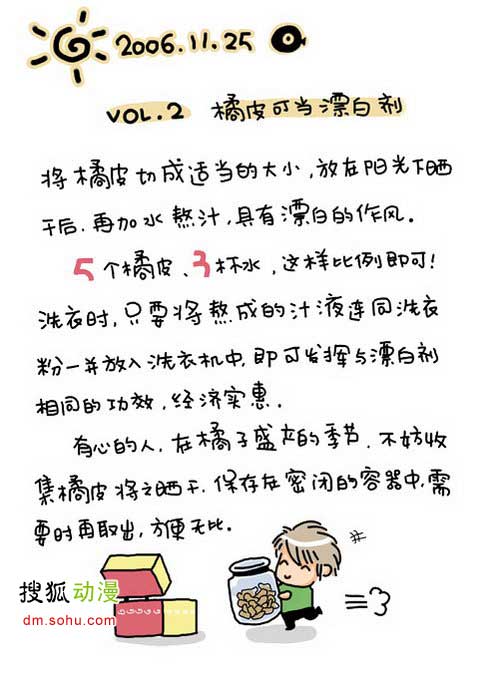 2006.11.25
VOL.2 橘皮可当漂白剂
将橘皮切成适当的大小,放在阳光下晒
干后,再加水熬汁,具有漂白的作风。
5个橘皮、3杯水,这样比例即可!
洗衣时,只要将熬成的汁液连同洗衣
粉一并放入洗衣机中,即可发挥与漂白剂
相同的功效,经济实惠。
有心的人,在橘子盛产的季节,不妨收
集橘皮将之晒干,保存在密闭的容器中,需
要时再取出,方便无比。
搜狐动漫
dm.sohu.com